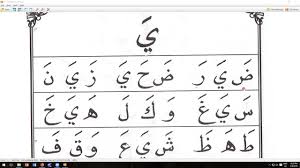 يَ
ضَيَرَ ضَحَيَ زَيَنَ
سَيَغَ وَكَلَ هَيَخَ
طَهَظَ شَيَعَ وَقَفَ